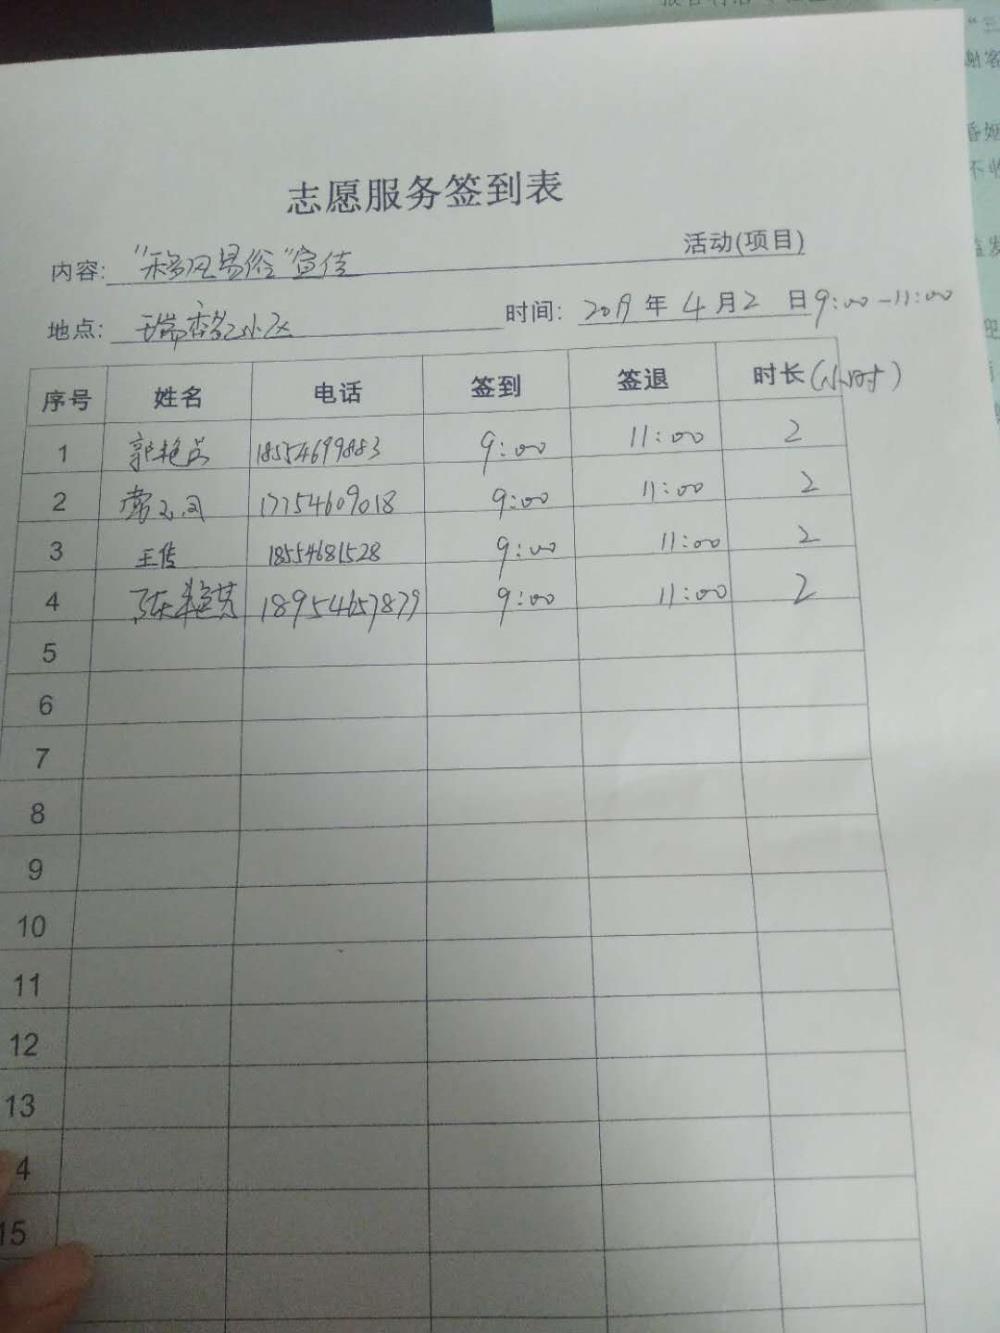 志愿服务签到表
内容: "移风易俗"宣传 活动(项目)
地点: 小区 时间: 2019年4月2日9:00-11:00
序号 姓名 电话 签到 签退 时长(小时)
1 郭艳 18554699883 9:00 11:00 2
2 17754609018 9:00 11:00 2
3 王传 18554681528 9:00 11:00 2
4 张艳其 18954657879 9:00 11:00 2
5
6
7
8
9
10
11
12
13
4
15